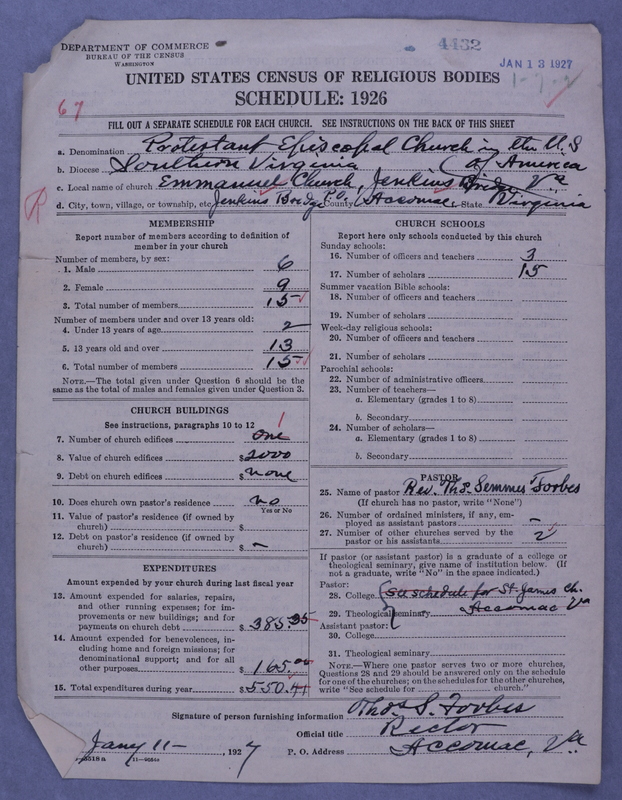 DEPARTMENT OF COMMERCE
BUREAU OF THE CENSUS
WASHINGTON
4432
JAN 13 1927
UNITED STATES CENSUS OF RELIGIOUS BODIES
SCHEDULE: 1926
67
FILL OUT A SEPARATE SCHEDULE FOR EACH CHURCH. SEE INSTRUCTIONS ON THE BACK OF THIS SHEET
a. Denomination Protestant Episcopal Church in the U.S
b. Diocese Southern Virginia of America
c. Local name of church Emmanuel Church, Jenkins Bridge Va
d. City, town, village, or township, etc Jenkins Bridge P.O. County Accomac, State Virginia
R
MEMBERSHIP
Report number of members according to definition of
member in your church
Number of members, by sex:
1. Male 6
2. Female 9
3. Total number of members 15
Number of members under and over 13 years old:
4. Under 13 years of age 2
5. 13 years old and over 13
6. Total number of members 15
NOTE.—The total given under Question 6 should be the
same as the total of males and females given under Question 3.
CHURCH BUILDINGS
See instructions, paragraphs 10 to 12
1
7. Number of church edifices one
8. Value of church edifices $2000
9. Debt on church edifices $none
10. Does church own pastor's residence no
Yes or No
11. Value of pastor's residence (if owned by
church) $
12. Debt on pastor's residence (if owned by
church) $ —
EXPENDITURES
Amount expended by your church during last fiscal year
13. Amount expended for salaries, repairs,
and other running expenses; for im-
provements or new buildings; and for
payments on church debt $385.
14. Amount expended for benevolences, in-
cluding home and foreign missions; for
denominational support; and for all
other purposes $165.
15. Total expenditures during year $550.41
CHURCH SCHOOLS
Report here only schools conducted by this church
Sunday schools:
16. Number of officers and teachers 3
17. Number of scholars 15
Summer vacation Bible schools:
18. Number of officers and teachers
19. Number of scholars
Week-day religious schools:
20. Number of officers and teachers
21. Number of scholars
Parochial schools:
22. Number of administrative officers
23. Number of teachers—
a. Elementary (grades 1 to 8)
b. Secondary
24. Number of scholars—
a. Elementary (grades 1 to 8)
b. Secondary
PASTOR
25. Name of pastor Rev. Thos. Semmes Forbes
(If church has no pastor, write "None")
26. Number of ordained ministers, if any, em-
ployed as assistant pastors —
27. Number of other churches served by the
pastor or his assistants 2
If pastor (or assistant pastor) is a graduate of a college or
theological seminary, give name of institution below. (If
not a graduate, write "No" in the space indicated.)
Pastor:
28. College See schedule for St. James Ch.
29. Theological seminary Accomac Va
Assistant pastor:
30. College
31. Theological seminary
NOTE.—Where one pastor serves two or more churches,
Questions 28 and 29 should be answered only on the schedule
for one of the churches; on the schedules for the other churches,
write "See schedule for church."
Signature of person furnishing information Thos S. Forbes
Official title Rector
Jany 11-, 1927 P. O. Address Accomac, Va